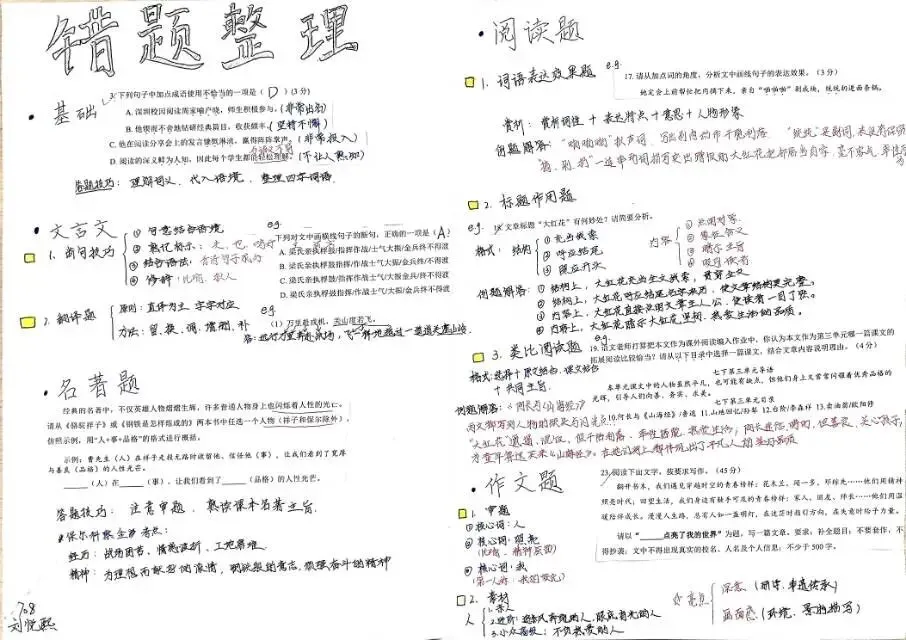 错题整理
• 基础
3. 下列句子中加点成语使用不恰当的一项是( D )(3分)
A. 深圳校园阅读周家喻户晓，师生积极参与。(非常出名)
B. 他锲而不舍地钻研经典篇目，收获颇丰。(坚持不懈)
C. 他在阅读分享会上的发言慷慨淋漓，赢得阵阵掌声。(非常投入)
D. 阅读的深义鲜为人知，因此每个学生都能轻松理解。(不让人熟知)
答题技巧：理解词义、代入语境、整理四字词语
• 文言文
1. 断句技巧
① 句意结合语境
② 熟记标示：之、也
③ 结合语法：
④ 修辞：比喻、拟人
e.g.
下列对文中画横线句子的断句，正确的一项是( A )
A. 梁氏亲执桴鼓/指挥作战/士气大振/金兵终不得渡
B. 梁氏亲执桴鼓指挥/作战士气/大振/金兵终不得渡
C. 梁氏亲执桴鼓/指挥作战士气/大振金兵/终不得渡
D. 梁氏亲执桴鼓指挥/作战/士气大振金兵/终不得渡
2. 翻译题
原则：直译为主，字字对应
方法：留、换、调、增删、补
e.g.
(1) 万里赴戎机，关山度若飞。
答：远行万里奔赴战场，飞一般地越过一道道关塞山岭。
• 名著题
经典的名著中，不仅英雄人物熠熠生辉，许多普通人物身上也闪烁着人性的光芒。
请从《骆驼祥子》或《钢铁是怎样炼成的》两本书中任选一个人物（祥子和保尔除外），
仿照示例，用“人+事+品格”的格式进行概括。
示例：曹先生（人）在祥子走投无路时收留他、信任他（事），让我们看到了宽厚
与善良（品格）的人性光芒。
______(人)在______(事)，让我们看到了______(品格)的人性光芒。
答题技巧：注意审题，熟读课本名著主旨。
*保尔·柯察金考点：
经历：战场负伤、情感波折、工地磨难
精神：为理想而献身的激情，钢铁般的意志，顽强奋斗的精神
708
刘悦熙
• 阅读题
1. 词语表达效果题
e.g.
17. 请从加点词的角度，分析文中画线句子的表达效果。(3分)
赏析：赏析词性 + 表达特点 + 意思 + 人物形象
例题解答：
2. 标题作用题
e.g. 18. 文章标题“大红花”有何妙处？请简要分析。
格式：结构
① 充当线索
② 呼应结尾
③ 照应开头
内容
① 点明对象
② 象征含义
③ 暗示主旨
④ 吸引读者
例题解答：① 结构上，大红花充当全文线索，贯穿全文
② 结构上，大红花呼应结尾
③ 内容上，大红花
④ 内容上，大红花暗示大红花坚韧、热爱生活的品质。
3. 类比阅读题
19. 语文老师打算把本文作为课外阅读编入作业中，你认为本文作为第三单元哪一篇课文的
拓展阅读比较恰当？请从以下目录中选择一篇课文，结合文章内容说明理由。(4分)
格式：选择 + 原文结合、课文结合
+ 共同主旨。
七下第三单元导语
本单元课文中的人物虽然平凡，也可能有缺点，但他们身上又常常闪耀着优秀品格的
光辉，引导人们向善、务实、求美。
七下第三单元目录
10. 阿长与《山海经》/鲁迅 11. 山地回忆/孙犁 12. 台阶/李森祥 13. 卖油翁/欧阳修
例题解答：《阿长与〈山海经〉》
• 作文题
23. 阅读下面文字，按要求写作。(45分)
翻开书本，我们遇见穿越时空的青春榜样：花木兰、闻一多、邓稼先……他们用精神
照亮时代；回望生活，我们身边有触手可及的青春榜样：家人、朋友、师长……他们用温
暖陪伴成长。漫漫人生路，总有人如一盏明灯，在迷茫时指引方向，在失意时给予力量。
请以“______点亮了我的世界”为题，写一篇文章。要求：补全题目；不要套作，不
得抄袭；文中不得出现真实的校名、人名及个人信息；不少于500字。
1. 审题
① 核心词：人
② 核心词：照亮
(比喻、精神层面)
③ 核心词：我
2. 素材
人
1. 亲人